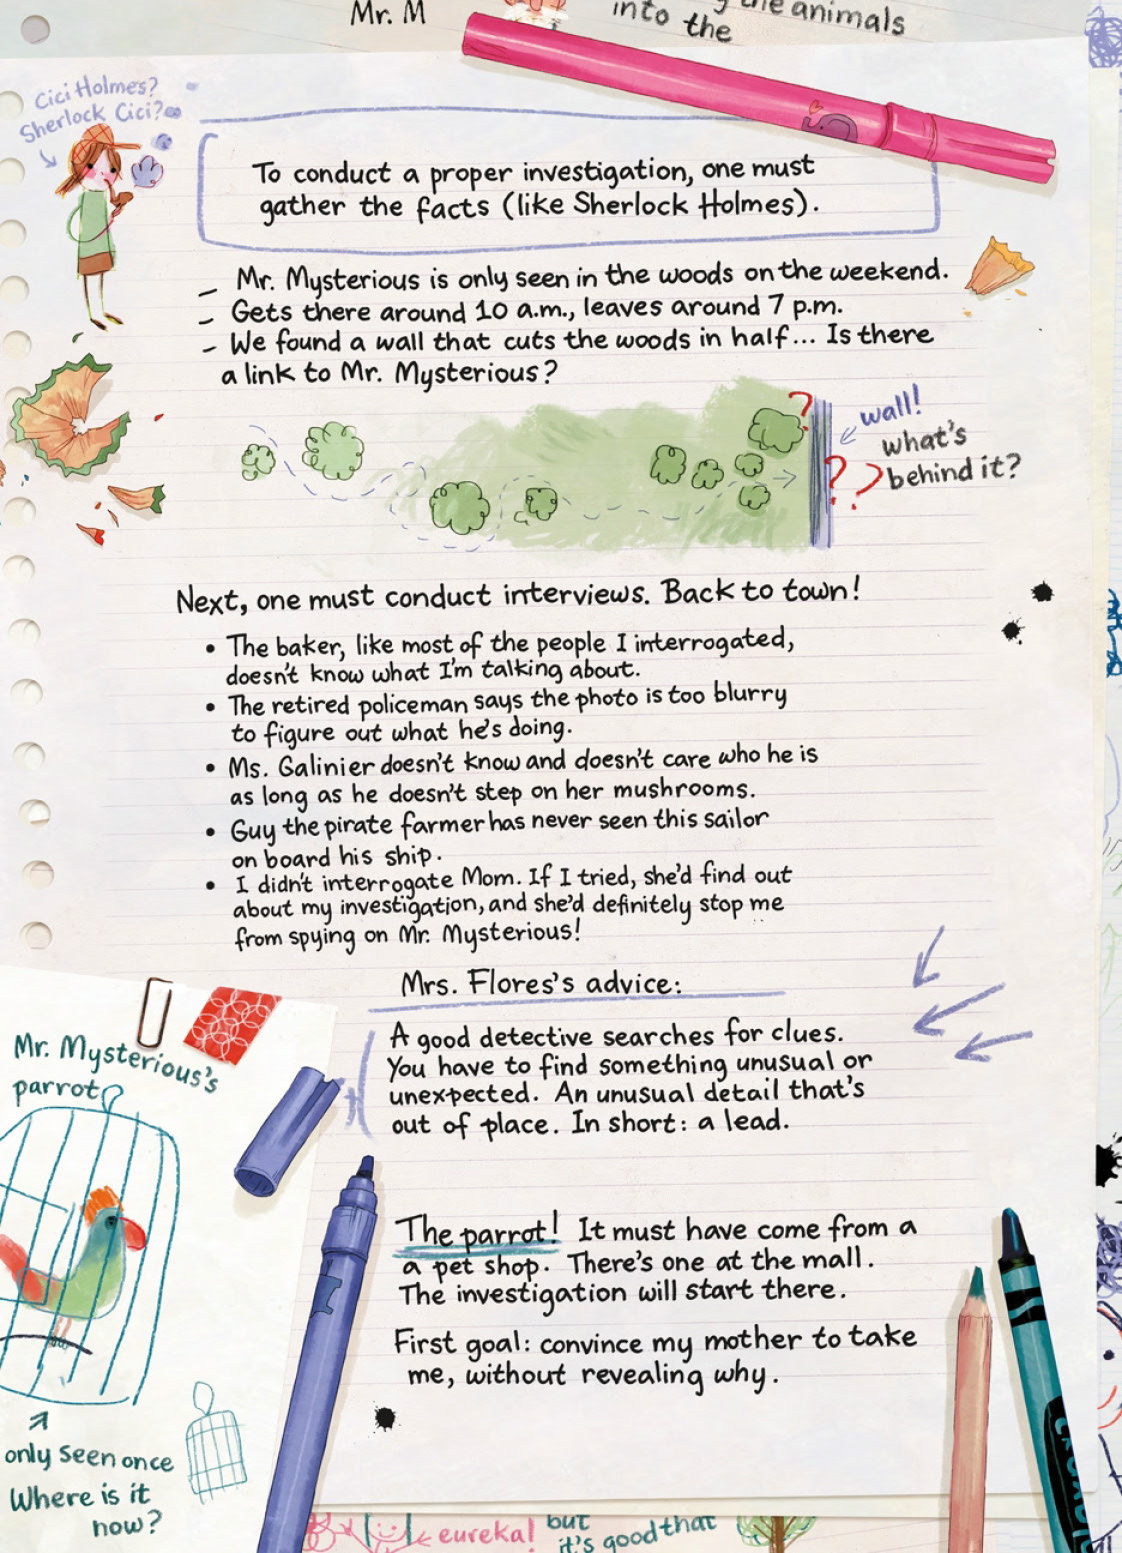 Mr. M
the animals
into the
Cici Holmes?
Sherlock Cici?
To conduct a proper investigation, one must
gather the facts (like Sherlock Holmes).
– Mr. Mysterious is only seen in the woods on the weekend.
– Gets there around 10 a.m., leaves around 7 p.m.
– We found a wall that cuts the woods in half... Is there
a link to Mr. Mysterious?
?
wall!
what's
behind it?
? ?
Next, one must conduct interviews. Back to town!
• The baker, like most of the people I interrogated,
doesn't know what I'm talking about.
• The retired policeman says the photo is too blurry
to figure out what he's doing.
• Ms. Galinier doesn't know and doesn't care who he is
as long as he doesn't step on her mushrooms.
• Guy the pirate farmer has never seen this sailor
on board his ship.
• I didn't interrogate Mom. If I tried, she'd find out
about my investigation, and she'd definitely stop me
from spying on Mr. Mysterious!
Mrs. Flores's advice:
A good detective searches for clues.
You have to find something unusual or
unexpected. An unusual detail that's
out of place. In short: a lead.
Mr. Mysterious's
parrot
The parrot! It must have come from a
a pet shop. There's one at the mall.
The investigation will start there.
First goal: convince my mother to take
me, without revealing why.
only seen once
Where is it
now?
eureka!
but
it's good that